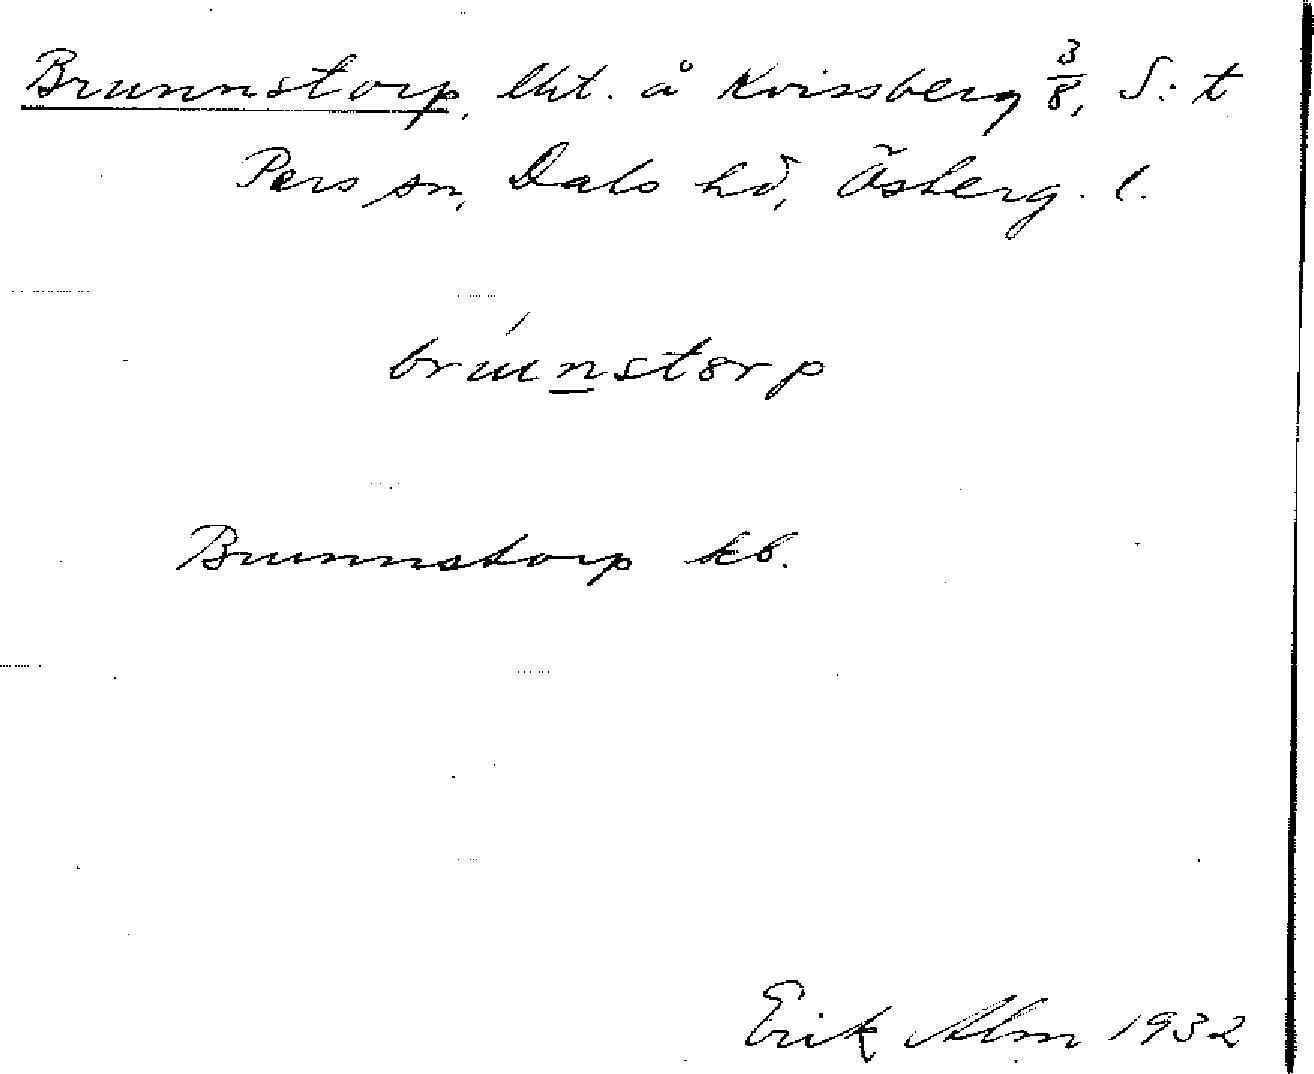 Brunnstorp, lht. å Kvissberg 3/8, S:t
Pers sn, Dals hd, Österg. l.
brúnstorp
Brunnstorp kb.
Erik Alm 1932